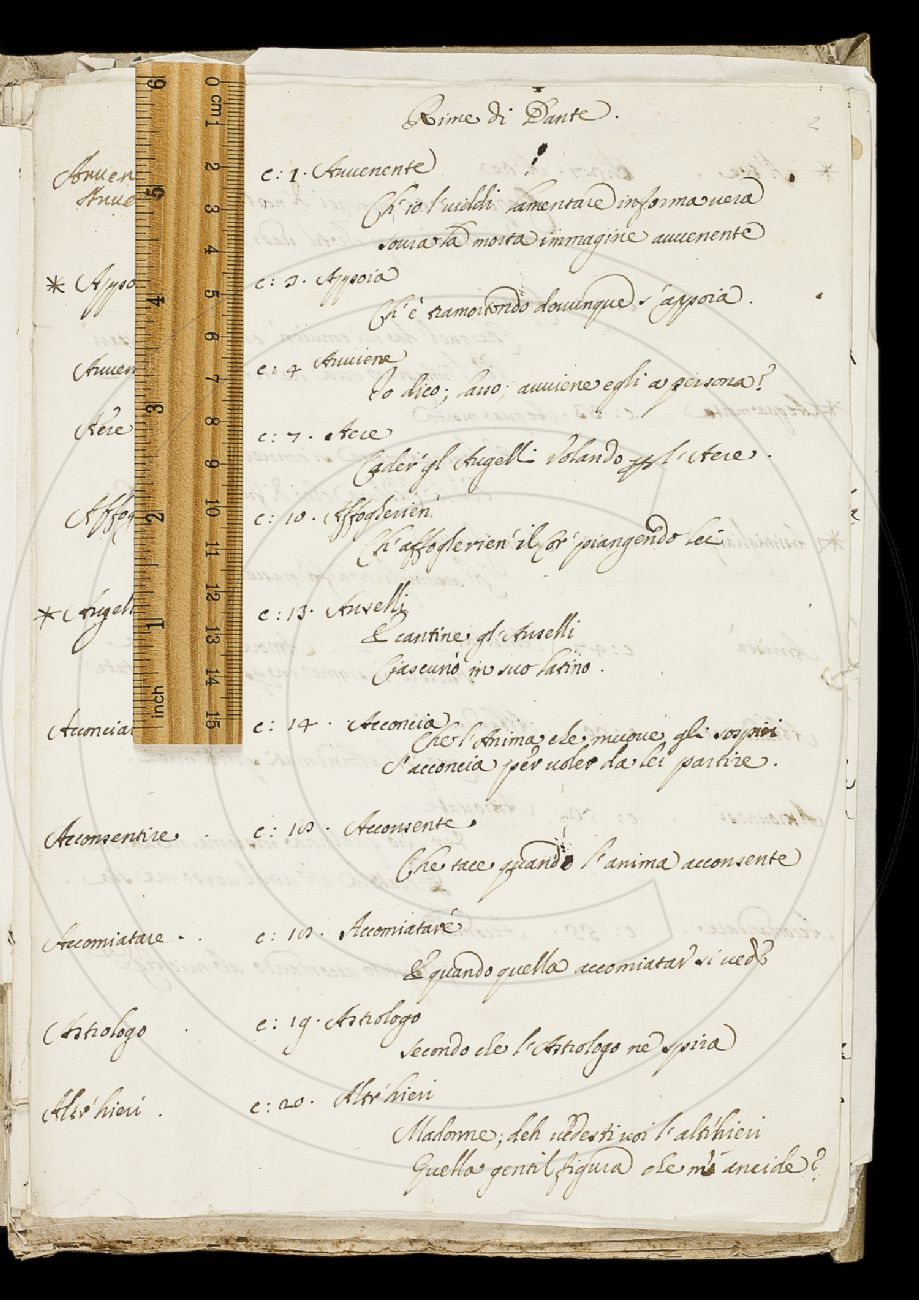 Rime di Dante.
2
Avven
c: 1. Avvenente
Avve
Ch'io l'viddi lamentare in forma vera
sovra la morta immagine avvenente
* Appo
c: 3. Appoia
Ch'è tramortendo dovunque s'appoia.
Avven
c: 4 Avviene
Io dico; avviene egli a persona?
Aere
c: 7. Aere
Cader gl'Augelli volando pp l'Aere.
Affog
c: 10. Affoglerien
Ch'affoglerien' il Cor' piangendo lei
* Augell
c: 13. Auselli
E cantine gl'Auselli
Ciascuno in suo latino.
Acconcia
c: 14. Acconcia
Che l'Anima che muove gli sospiri
S'acconcia per voler da lei partire.
Acconsentire.
c: 18. Acconsente.
Che tace quando l'anima acconsente
Accomiatare.
c: 18. Accomiatare
E quando quella accomiatar si vede
Astrologo
c: 19. Astrologo
secondo che l'Astrologo ne spira
Altr'hieri.
c: 20. Altr'hieri
Madonne; deh vedesti voi l'altrhieri
Quella gentil figura che m'ancide?
6
5
4
3
2
1
inch
0 cm 1
2
3
4
5
6
7
8
9
10
11
12
13
14
15